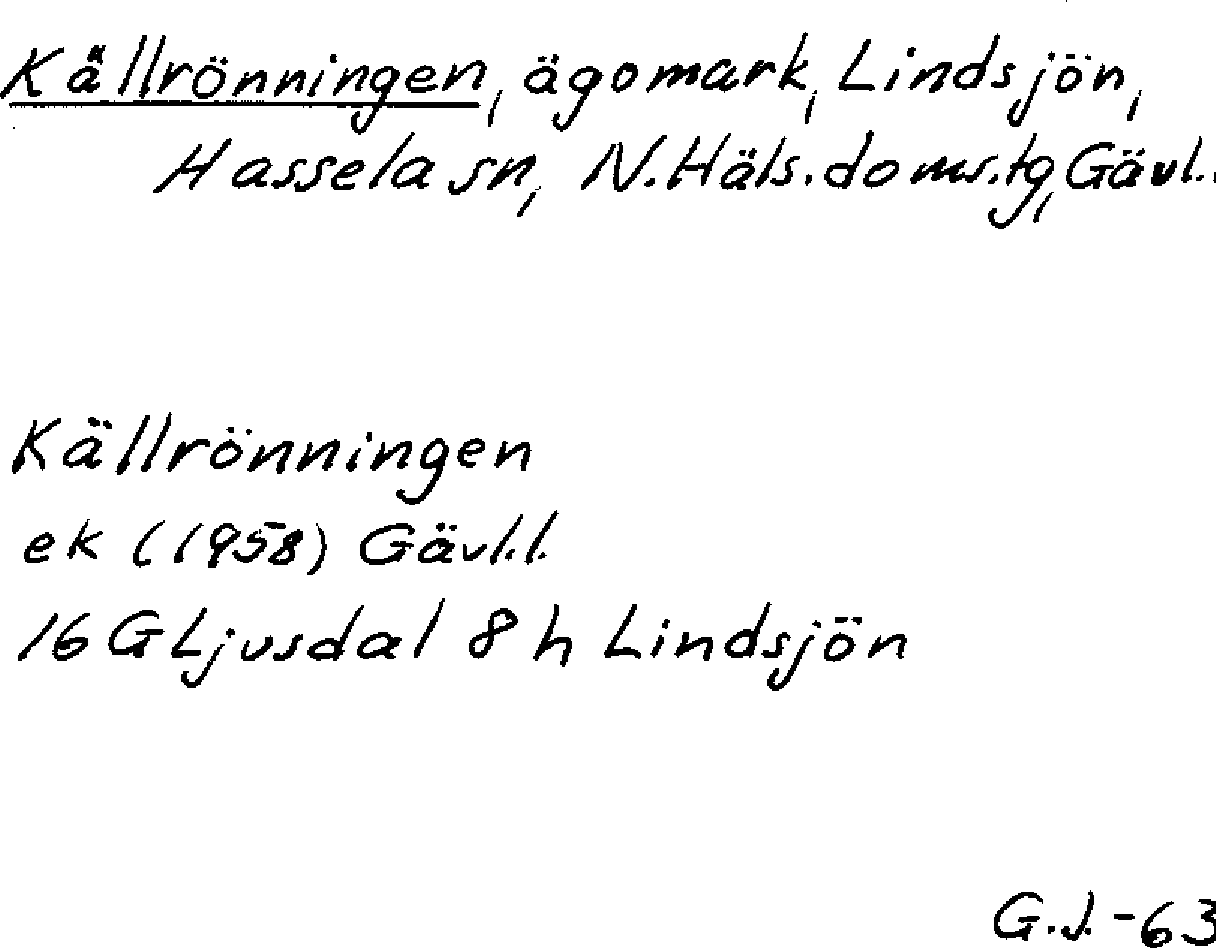 Källrönningen, ägomark, Lindsjön,
Hassela sn, N.Häls.doms.tg, Gävl.
Källrönningen
ek (1958) Gävl.l.
16 G Ljusdal 8 h Lindsjön
G.J.-63